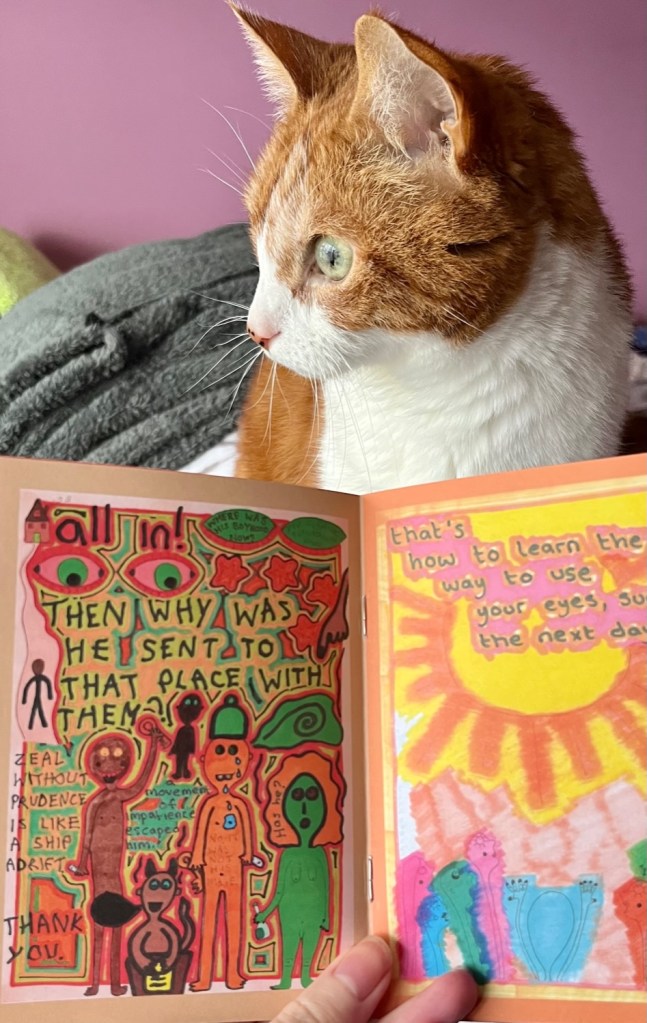 all in!
WHERE WAS
HIS
NOW?
THEN WHY WAS
HE SENT TO
THAT PLACE WITH
THEM?
ZEAL
WITHOUT
PRUDENCE
IS LIKE
A SHIP
ADRIFT
movement
of
impatience
escaped
him.
THANK
YOU.
that's
how to learn the
way to use
your eyes,
the next day